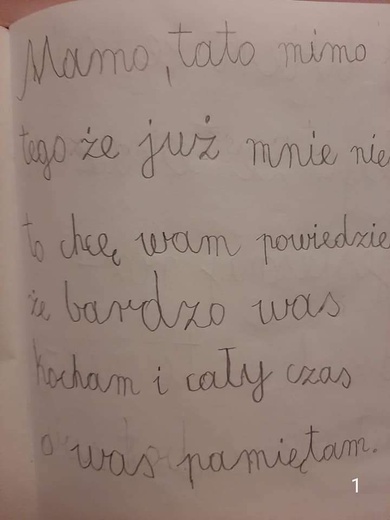 Mamo, tato mimo
tego że już mnie nie
to chcę wam powiedzie
że bardzo was
kocham i cały czas
o was pamiętam.
1